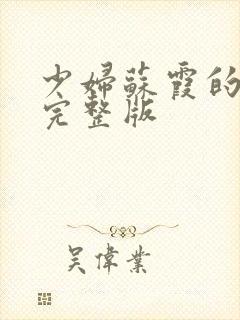 少婦蘇霞的
完整版
吳偉業